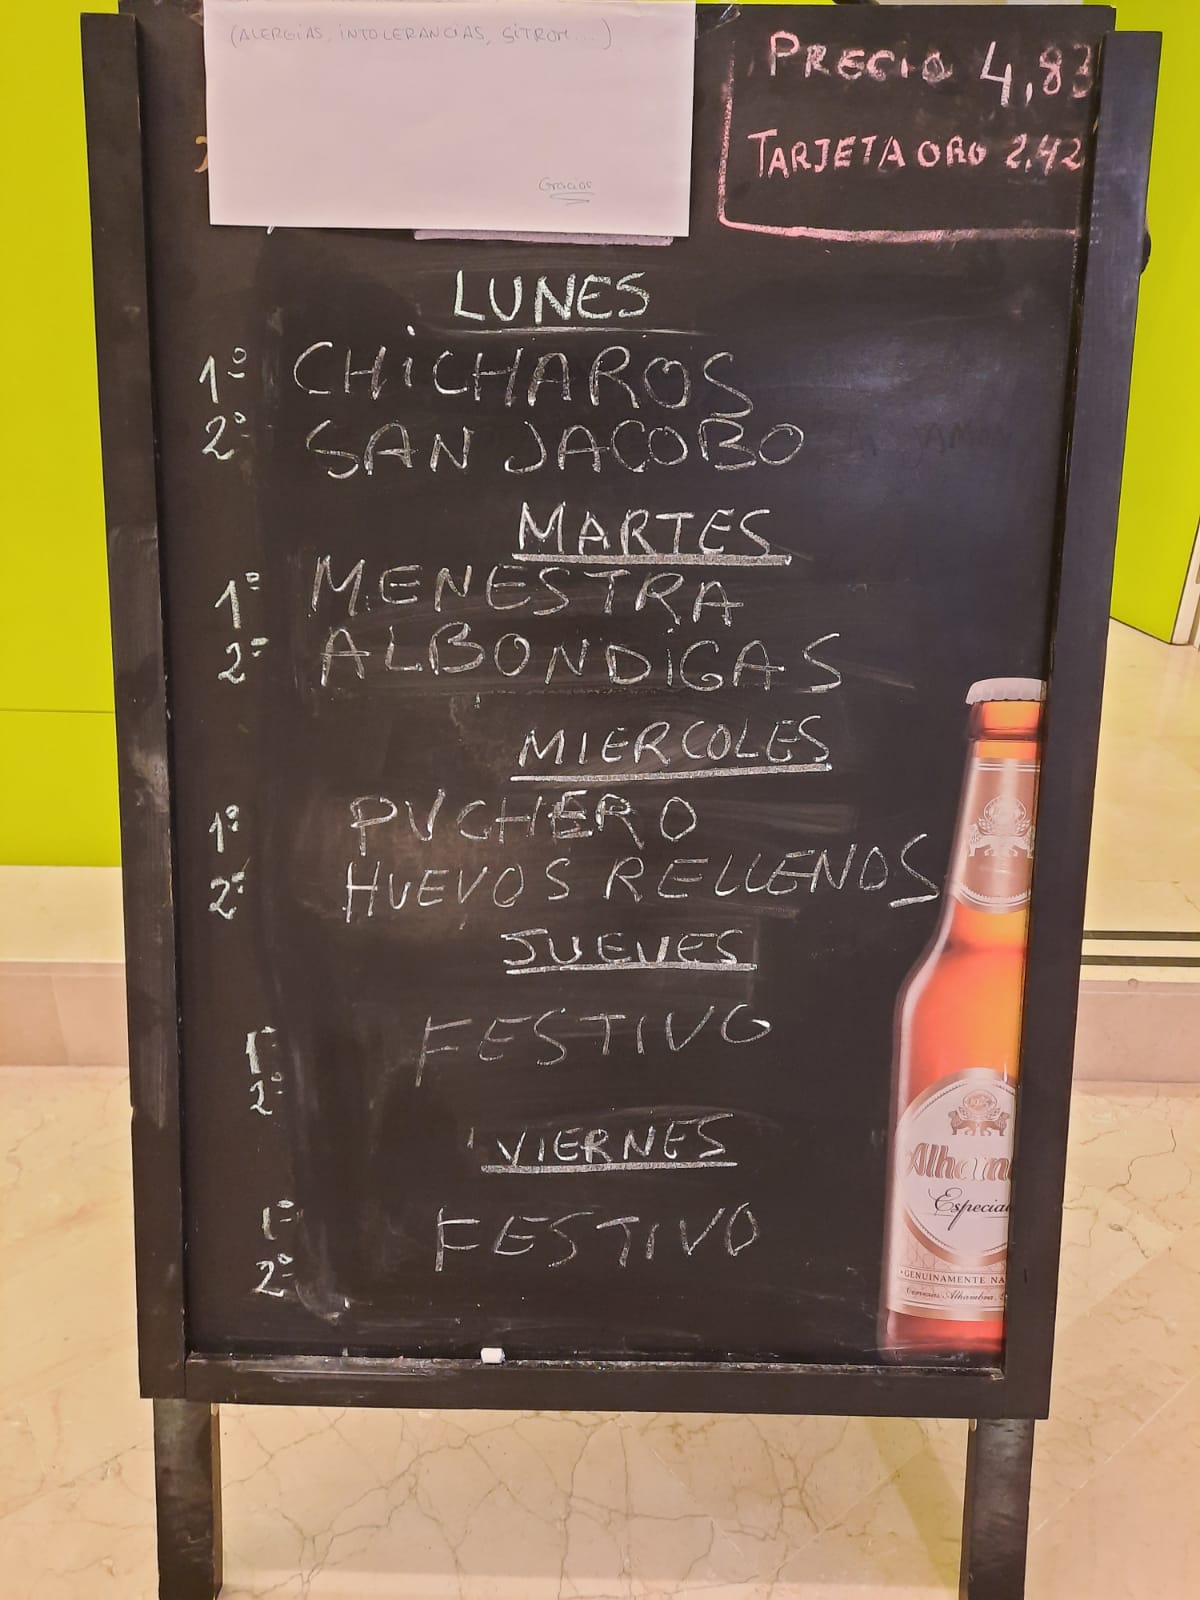 (ALERGIAS, INTOLERANCIAS, SITROM...)
Gracias
PRECIO 4,83
TARJETA ORO 2,42
LUNES
1º CHICHAROS
2º SAN JACOBO
MARTES
1º MENESTRA
2º ALBONDIGAS
MIERCOLES
1º PUCHERO
2º HUEVOS RELLENOS
JUEVES
1º FESTIVO
2º
VIERNES
1º FESTIVO
2º
Alham
Especial
GENUINAMENTE NA
Cervezas Alhambra, S